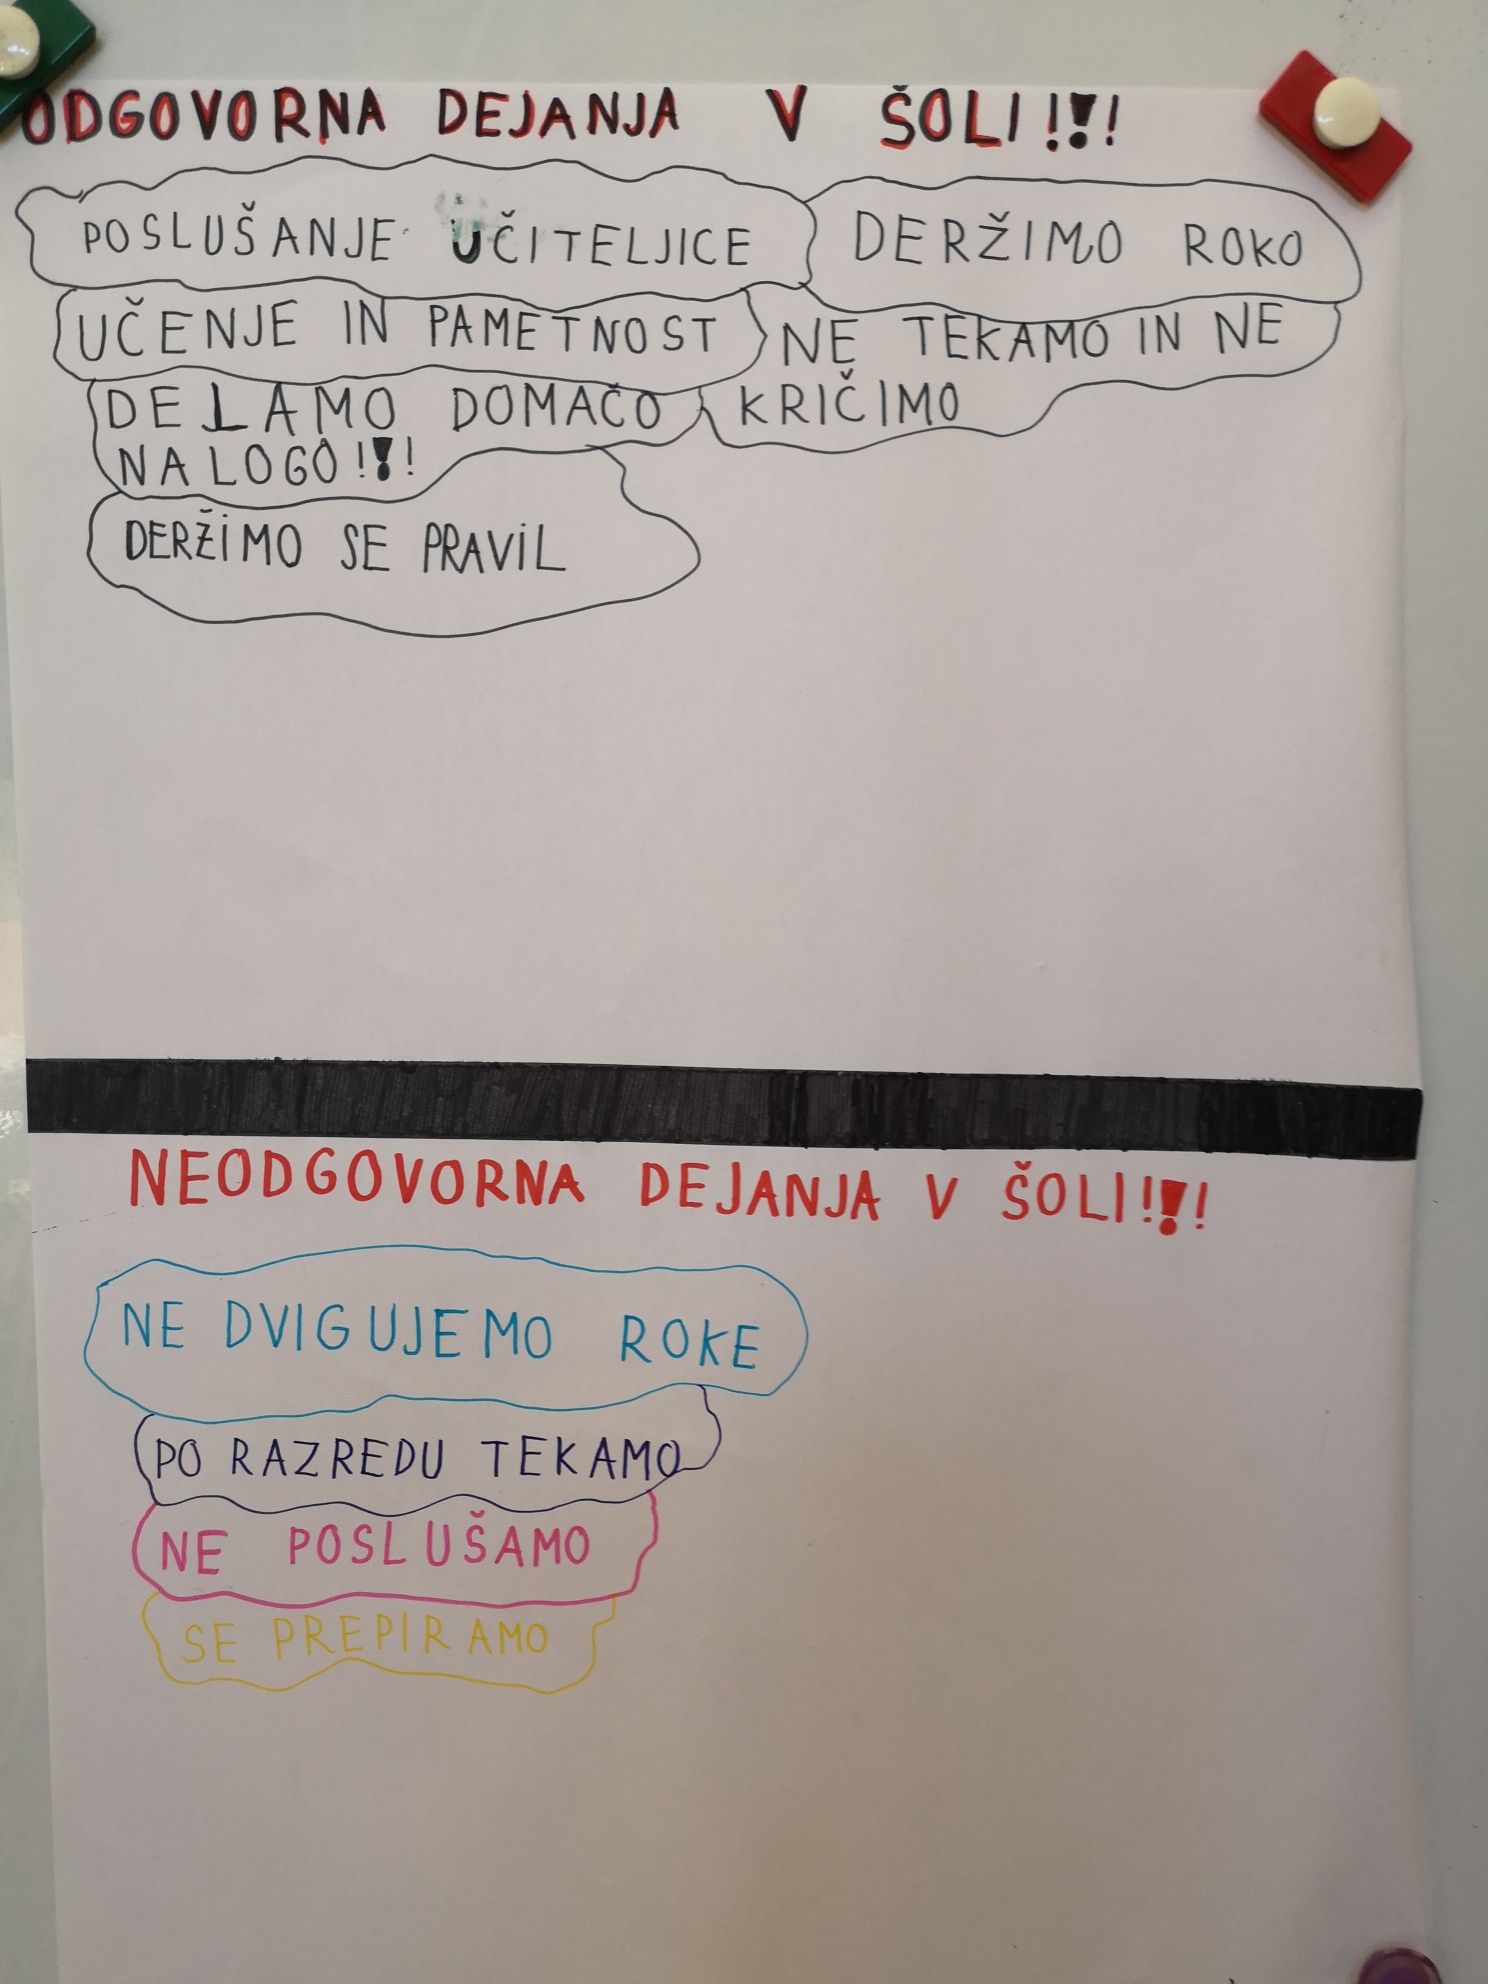 ODGOVORNA DEJANJA V ŠOLI!!!
POSLUŠANJE UČITELJICE
DERŽIMO ROKO
UČENJE IN PAMETNOST
NE TEKAMO IN NE
KRIČIMO
DELAMO DOMAČO
NALOGO!!!
DERŽIMO SE PRAVIL
NEODGOVORNA DEJANJA V ŠOLI!!!
NE DVIGUJEMO ROKE
PO RAZREDU TEKAMO
NE POSLUŠAMO
SE PREPIRAMO